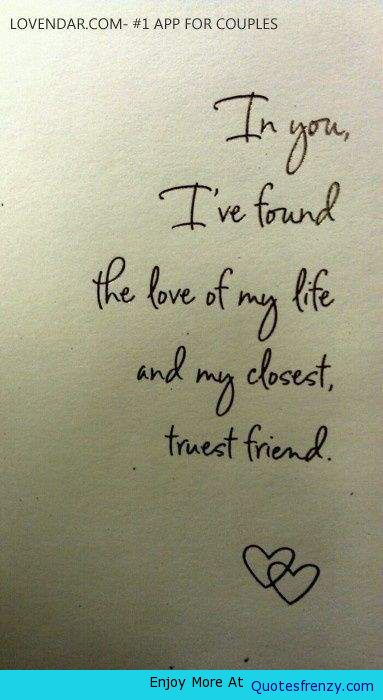 LOVENDAR.COM- #1 APP FOR COUPLES
In you,
I've found
the love of my life
and my closest,
truest friend.
Enjoy More At Quotesfrenzy.com